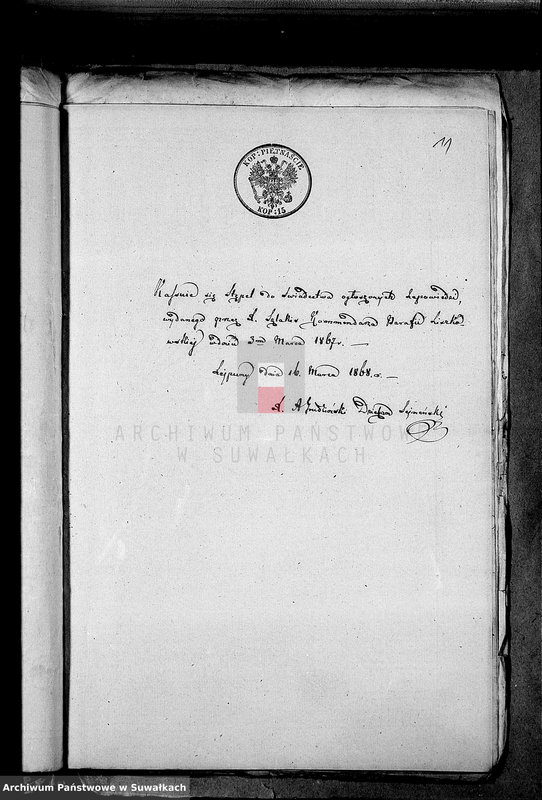 11
KOP: PIĘTNAŚCIE
KOP: 15
Kassuie się Stępel do Świadectwa ogłoszonych Zapowiedzi,
wydanego przez X. Szlakis Kommendarza Parafii
wskiej w dniu 3 Marca 1867 r. —
Łejpuny dnia 16. Marca 1868. r. —
X. A Dziekan Sejneński
ARCHIWUM PAŃSTWOWE
W SUWAŁKACH
Archiwum Państwowe w Suwałkach